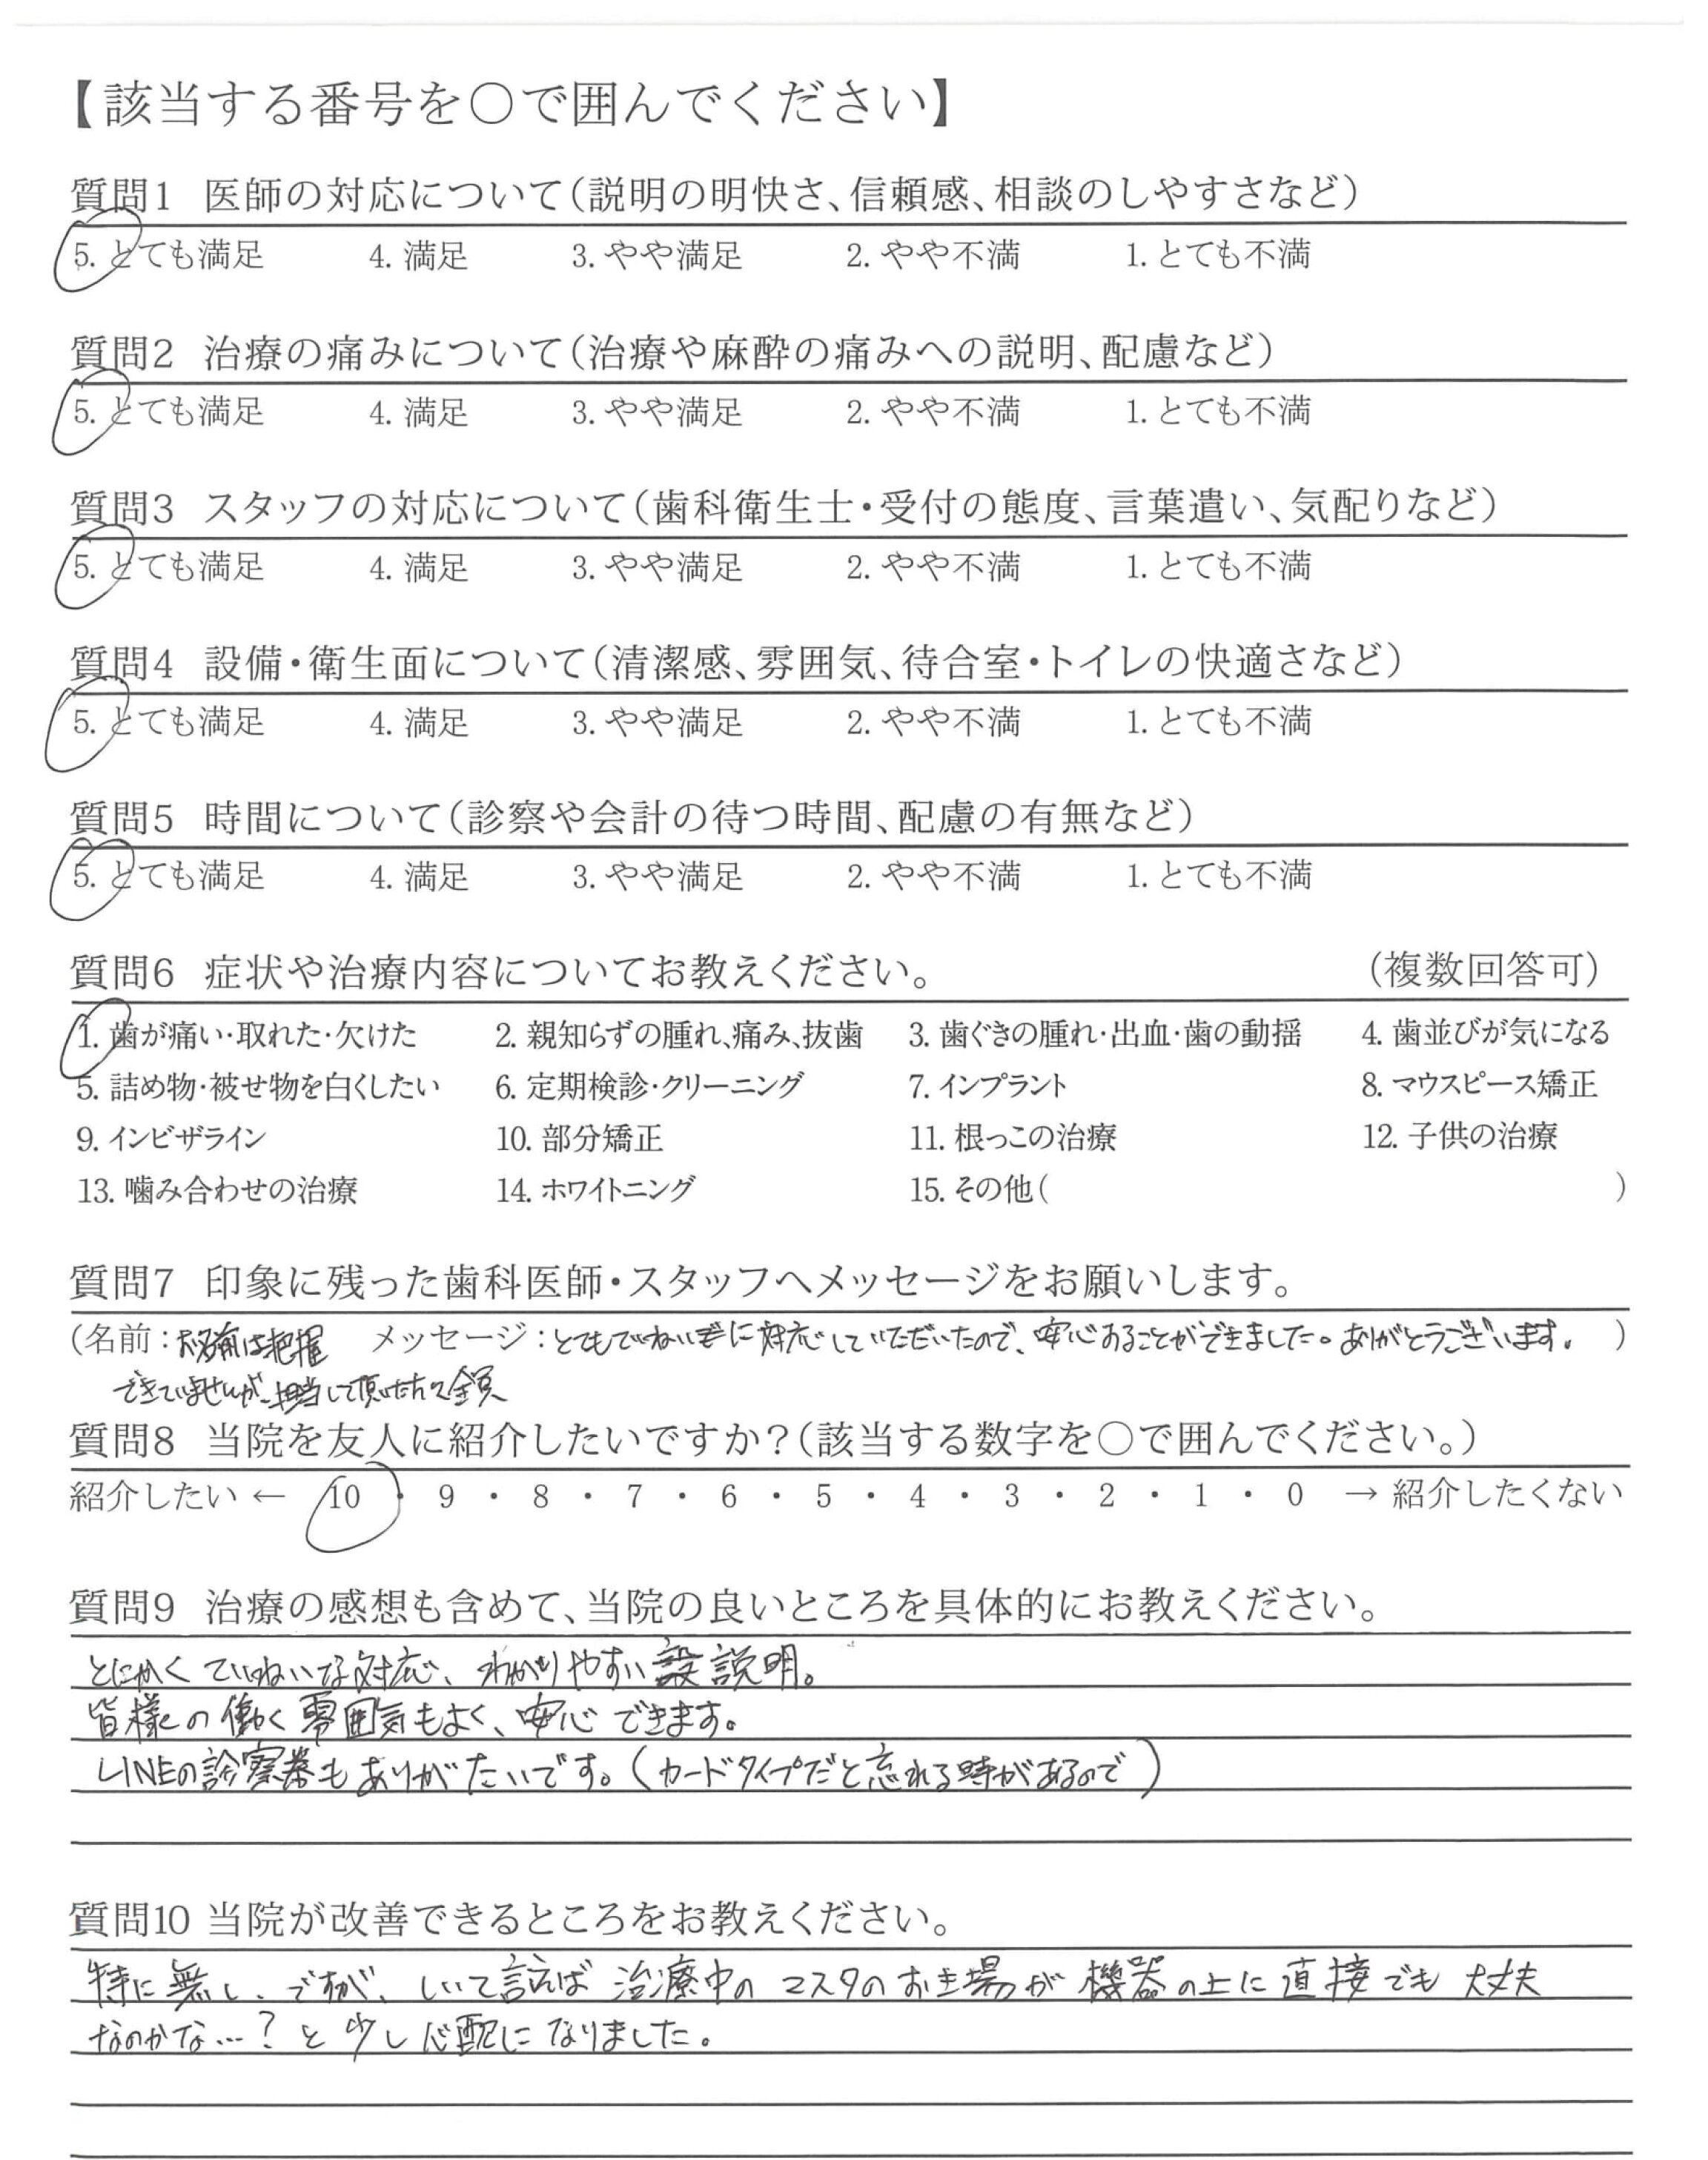 【該当する番号を○で囲んでください】
質問1 医師の対応について(説明の明快さ、信頼感、相談のしやすさなど)
5. とても満足 4. 満足 3. やや満足 2. やや不満 1. とても不満
質問2 治療の痛みについて(治療や麻酔の痛みへの説明、配慮など)
5. とても満足 4. 満足 3. やや満足 2. やや不満 1. とても不満
質問3 スタッフの対応について(歯科衛生士・受付の態度、言葉遣い、気配りなど)
5. とても満足 4. 満足 3. やや満足 2. やや不満 1. とても不満
質問4 設備・衛生面について(清潔感、雰囲気、待合室・トイレの快適さなど)
5. とても満足 4. 満足 3. やや満足 2. やや不満 1. とても不満
質問5 時間について(診察や会計の待つ時間、配慮の有無など)
5. とても満足 4. 満足 3. やや満足 2. やや不満 1. とても不満
質問6 症状や治療内容についてお教えください。 (複数回答可)
1. 歯が痛い・取れた・欠けた 2. 親知らずの腫れ、痛み、抜歯 3. 歯ぐきの腫れ・出血・歯の動揺 4. 歯並びが気になる
5. 詰め物・被せ物を白くしたい 6. 定期検診・クリーニング 7. インプラント 8. マウスピース矯正
9. インビザライン 10. 部分矯正 11. 根っこの治療 12. 子供の治療
13. 噛み合わせの治療 14. ホワイトニング 15. その他( )
質問7 印象に残った歯科医師・スタッフへメッセージをお願いします。
(名前:お名前は把握 メッセージ:とてもていねいに対応していただいたので、安心することができました。ありがとうございます。 )
できていませんが、担当して頂いた方々全員
質問8 当院を友人に紹介したいですか?(該当する数字を○で囲んでください。)
紹介したい ← 10 ・ 9 ・ 8 ・ 7 ・ 6 ・ 5 ・ 4 ・ 3 ・ 2 ・ 1 ・ 0 → 紹介したくない
質問9 治療の感想も含めて、当院の良いところを具体的にお教えください。
とにかくていねいな対応、わかりやすい説明。
皆様の働く雰囲気もよく、安心できます。
LINEの診察券もありがたいです。(カードタイプだと忘れる時があるので)
質問10 当院が改善できるところをお教えください。
特に無し、ですが、しいて言えば治療中のマスクのお き場が機器の上に直接でも大丈夫
なのかな…?と少し心配になりました。